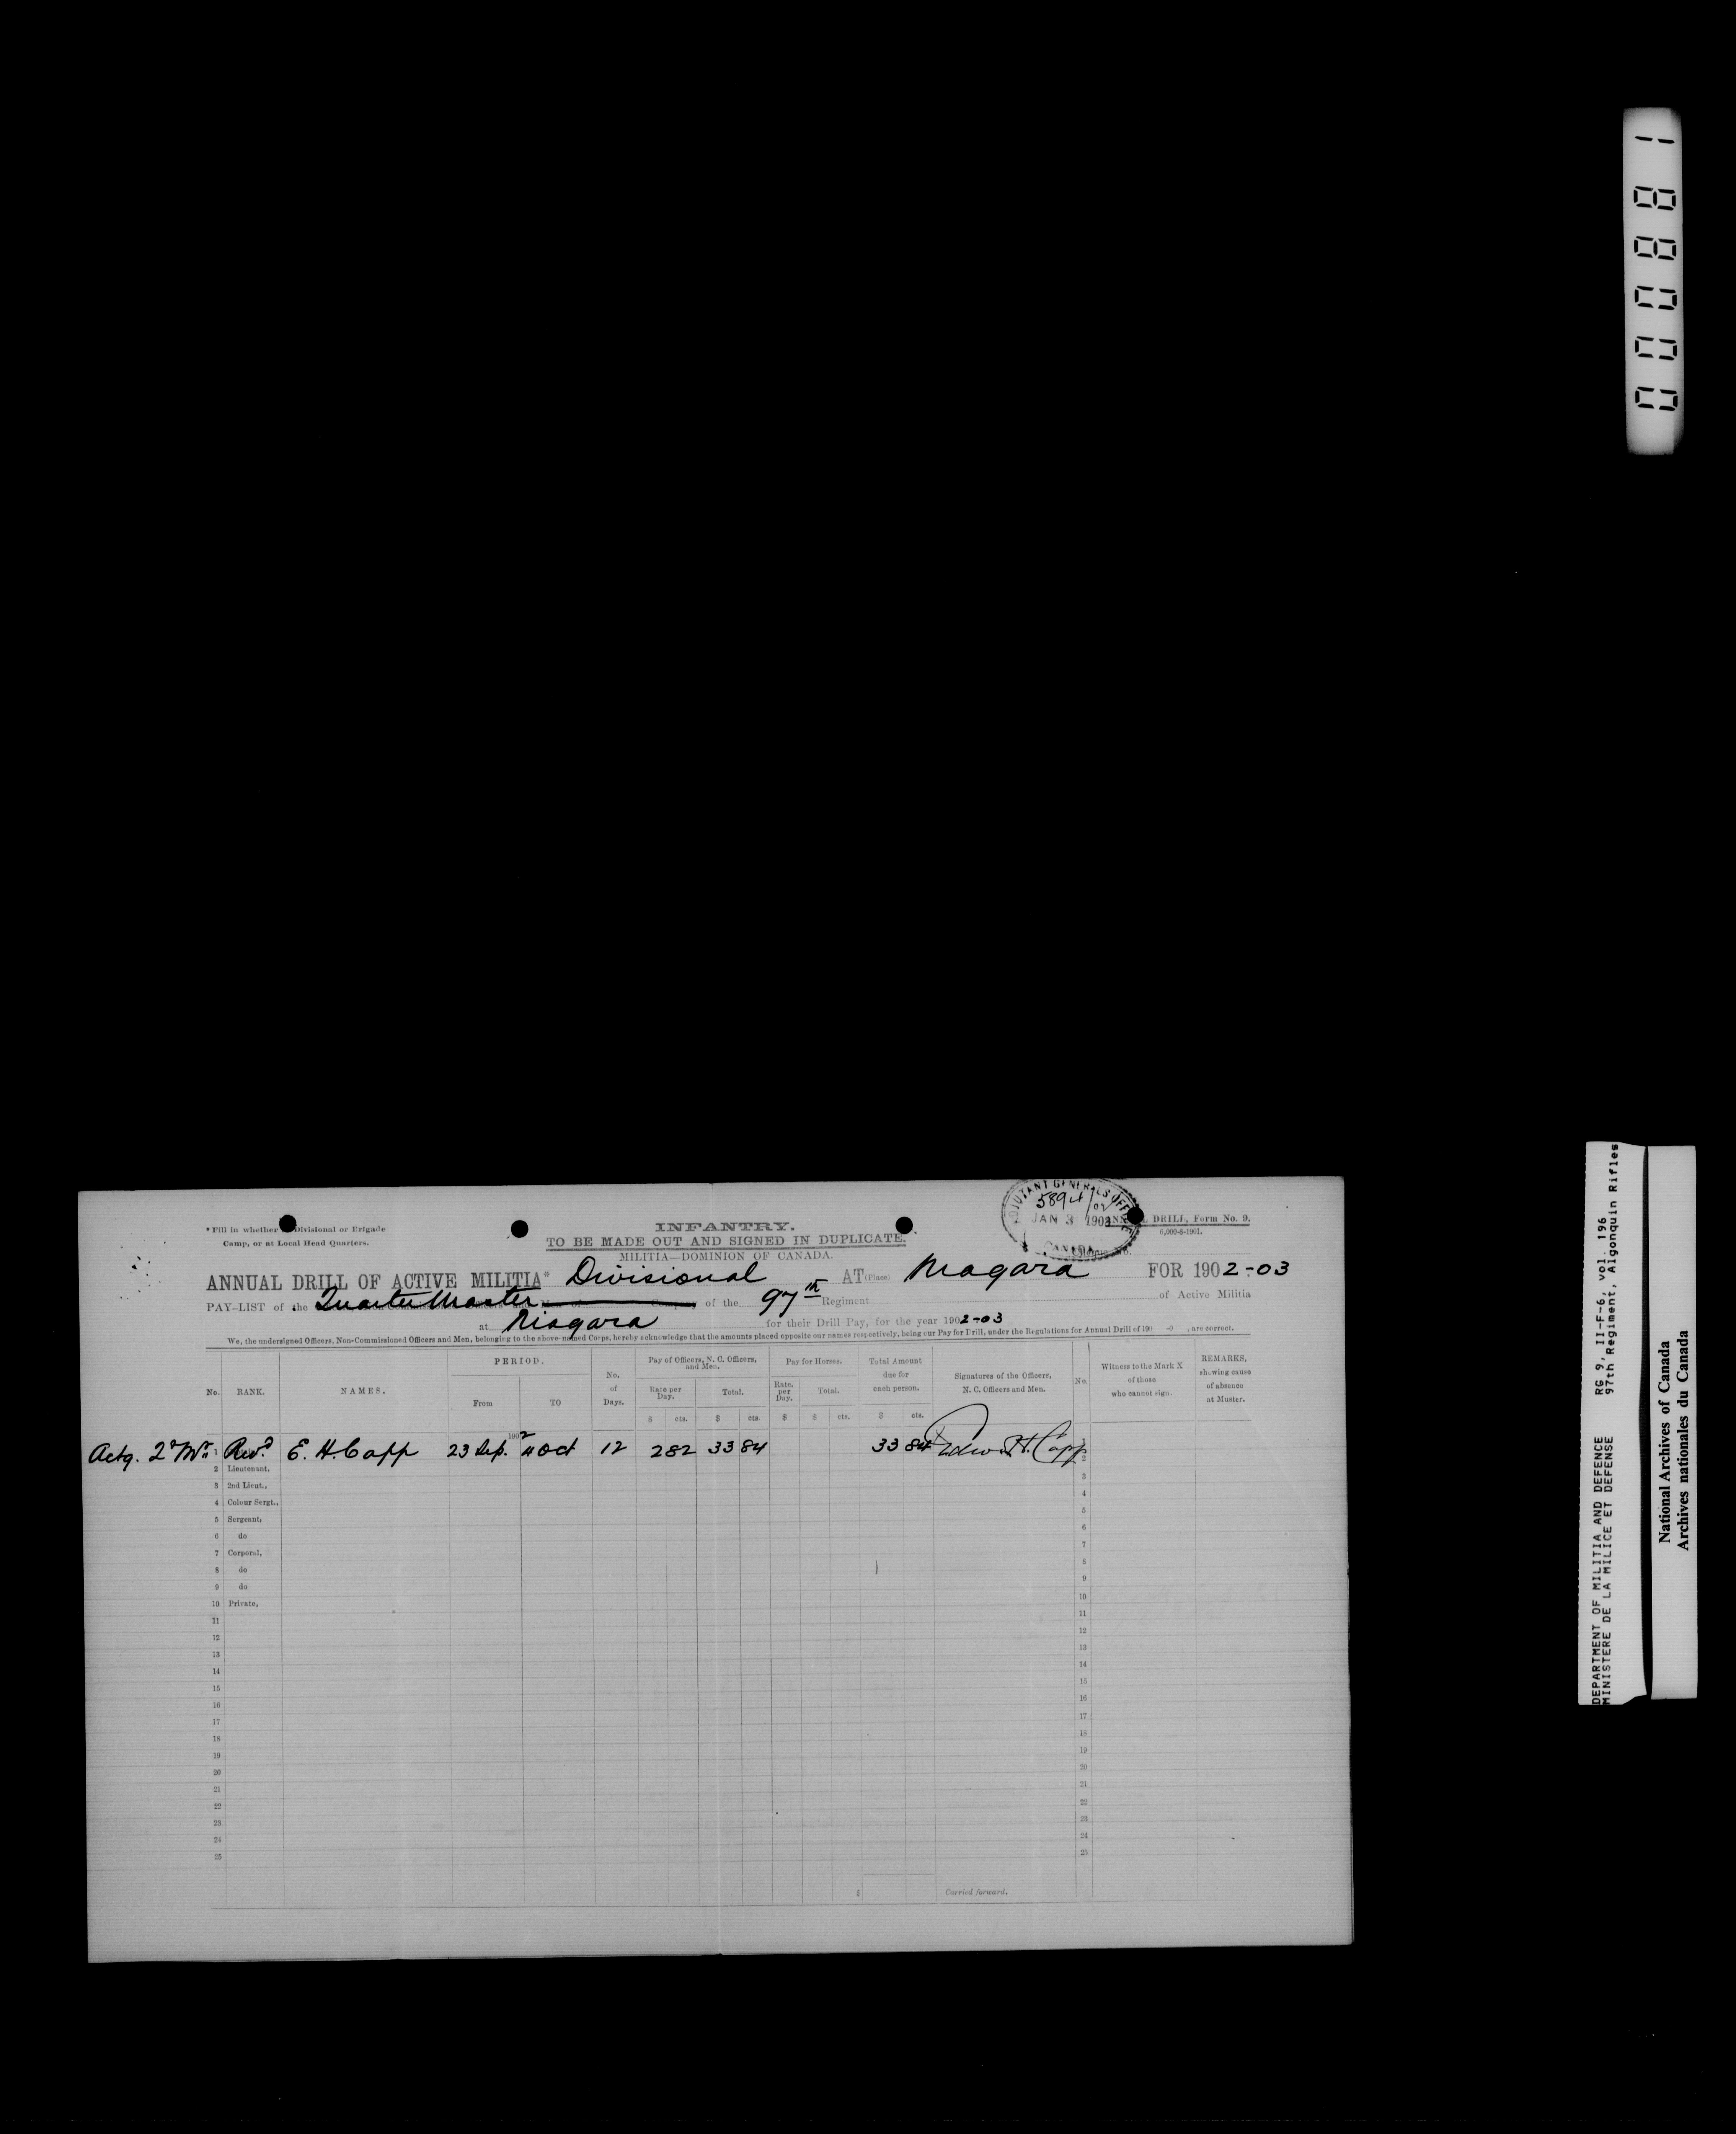 000881
ADJUTANT GENERAL'S OFFICE
5894/02
JAN 3 1903
CANADA
DRILL, Form No. 9.
6,000-8-1901.
* Fill in whether Divisional or Brigade
Camp, or at Local Head Quarters.
INFANTRY.
TO BE MADE OUT AND SIGNED IN DUPLICATE.
MILITIA—DOMINION OF CANADA.
ANNUAL DRILL OF ACTIVE MILITIA* Divisional AT (Place) Niagara FOR 1902-03
PAY-LIST of the Quarter Master of the 97th Regiment of Active Militia
at Niagara for their Drill Pay, for the year 1902-03
We, the undersigned Officers, Non-Commissioned Officers and Men, belonging to the above named Corps, hereby acknowledge that the amounts placed opposite our names respectively, being our Pay for Drill, under the Regulations for Annual Drill of 190 -0 , are correct.
No. RANK. NAMES. PERIOD. From TO No. of Days. Pay of Officers, N. C. Officers, and Men. Rate per Day. Total. Pay for Horses. Rate per Day. Total. Total Amount due for each person. Signatures of the Officers, N. C. Officers and Men. No. Witness to the Mark X of those who cannot sign. REMARKS, showing cause of absence at Muster.
$ cts. $ cts. $ $ cts. $ cts.
1902
Actg. Qr Mr. 1 Revd. E. H. Capp 23 Sep. 4 Oct 12 2 82 33 84 33 84 Edwin H. Capp 1
2 Lieutenant, 2
3 2nd Lieut., 3
4 Colour Sergt., 4
5 Sergeant, 5
6 do 6
7 Corporal, 7
8 do 8
9 do 9
10 Private, 10
11 11
12 12
13 13
14 14
15 15
16 16
17 17
18 18
19 19
20 20
21 21
22 22
23 23
24 24
25 25
$ Carried forward.
DEPARTMENT OF MILITIA AND DEFENCE RG 9, II-F-6, vol. 196
MINISTERE DE LA MILICE ET DEFENSE 97th Regiment, Algonquin Rifles
National Archives of Canada
Archives nationales du Canada